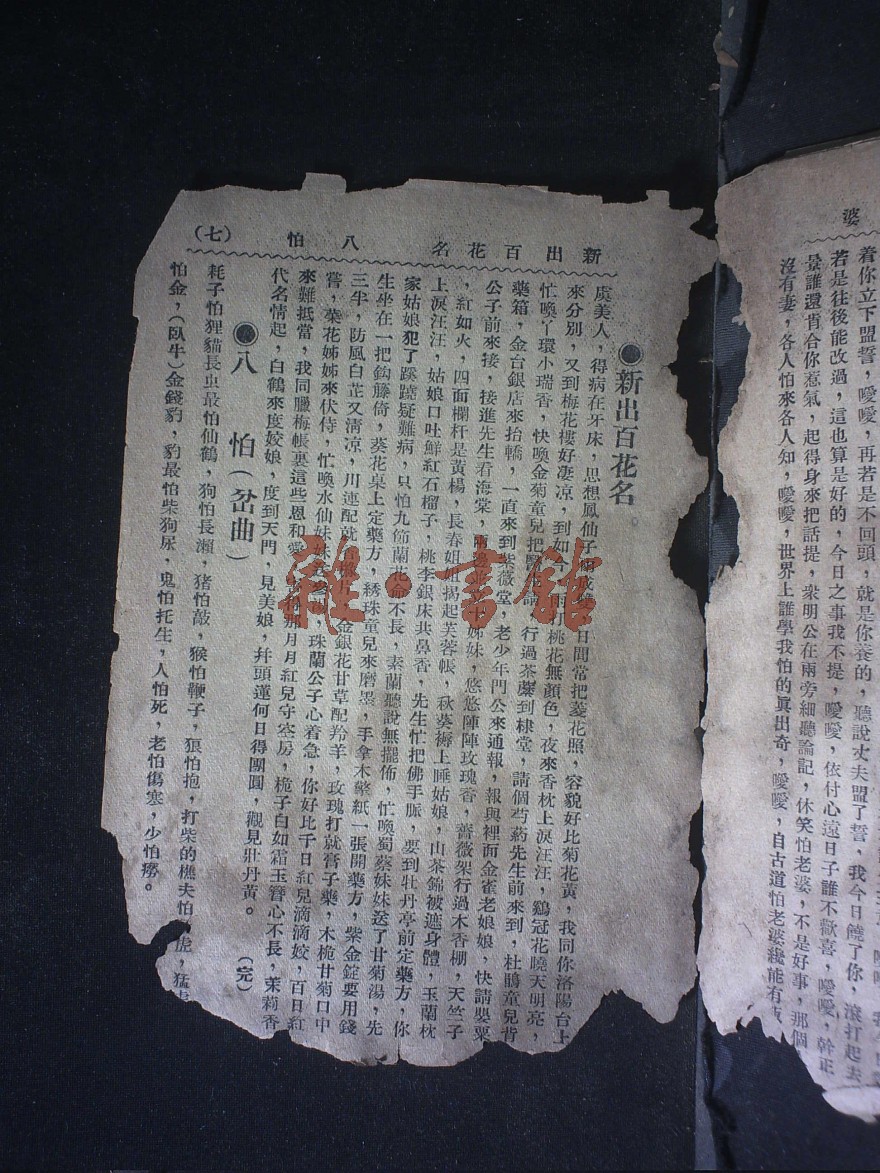 婆
着你立下盟誓，噯噯，再若是不回頭，就是你養的，聽說丈夫盟了誓，我今日饒了你，滾打起去
若是往後能改過，這也算是好的，今日之事我不提，噯噯，依付心遠日子誰不歡喜，噯噯，幹正
景誰還肯合你惹氣，起得身來把話提，衆明公在兩旁細聽論記，休笑怕老婆，不是好事，那個
沒有妻，各人怕來各人知，噯噯，世界上誰學我怕的眞出奇，噯噯，自古道怕老婆纔能有
新出百花名　八怕　（七）
●新出百花名。
虞美人，得病在牙床，思想鳳仙子，日間常把菱花照，容貌好比菊花黃，我同你洛陽台上
來分別，又到梅花樓好凄凉，到如今，雨打桃花無顏色，夜來香枕上淚汪汪，鷄冠花曉天明亮，
忙喚丫環小瑞香，快喚金菊童兒把醫生請，行過茶蘪到棣堂，請個芍葯先生前來到，杜鵑童兒背
藥箱，金台銀店來抬轎，一直來到紫薇堂，老少年門公來通報，報與裡面金雀老娘娘，快請罌粟
公子前來接，接進先生看海棠，兩邊姊妹，悠悠陣陣玫瑰香，薔薇架行過木香棚，天竺子
，紅如火，四面欄杆是黃楊，長春姐姐揭起芙蓉帳，秋葵褥上睡姑娘，山茶錦被遮身體，玉蘭枕
上淚汪汪，姑娘口吐鮮紅石榴子，桃李銀床共鼻香，先生忙把佛手脈，要到牡丹亭前定藥方，你
家姑娘犯了蹊蹺疑難病，只怕九節蘭花命不長，素蘭聽說無擺佈，忙喚蜀葵妹妹送了甘菊湯，先
生坐在一把鈎藤倚，葵花桌上定藥方，綉珠童兒來磨墨，手拿木筆紙一張開藥方，紫金錠要用錢
三半，防風白芷又清凉，川連配就片，金銀花甘草配羚羊，玫瑰打就膏子藥，木梔甘菊口中
嘗，菜花姊姊來伏侍，忙喚水仙妹妹，珠蘭公子心着急，你好比千日紅兒滴滴姣，百日紅
來難抵當，我同臘梅帳裏這些恩和愛，你那月月紅兒守空房，梔子白如霜玉簪心不長，茉莉香
代名情起，白鶴來度姣娘，度到天門，見美娘，幷頭蓮何日得團圓，觀見壯丹黃。　（完）
●八　怕（岔曲）
耗子怕狸貓長虫最怕仙鶴，狗怕長瀨，猪怕敲，猴怕鞭子，狼怕抱，打柴的樵夫怕虎，猛
怕金，（臥牛）金錢豹，豹最怕柴狗尿，鬼怕托生，人怕死，老怕傷寒，少怕癆。
雜·書館